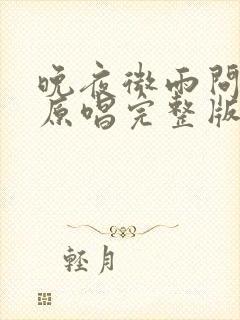 晚夜微雨問
原唱完整版
輕月